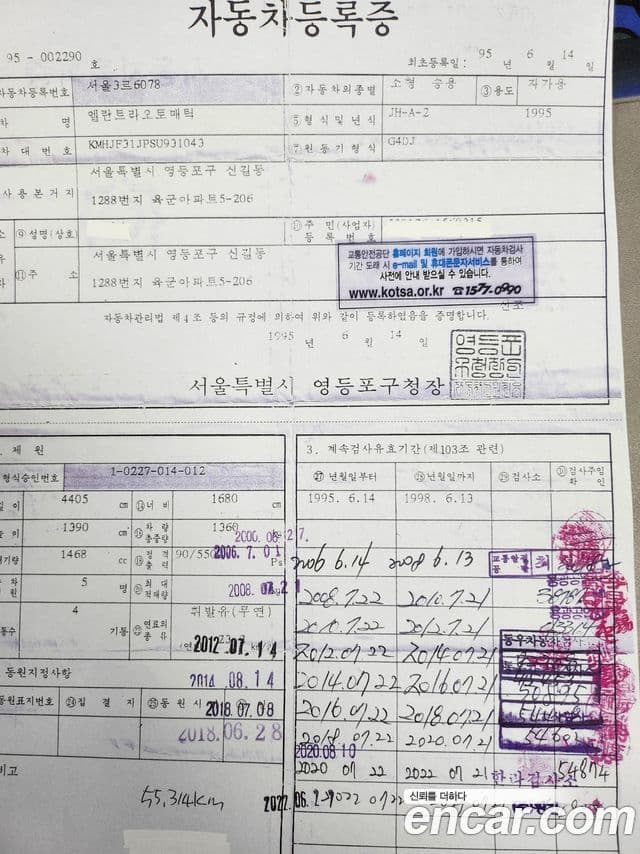 자동차등록증
95 - 002290 호
최초등록일: 95 년 6 월 14 일
자동차등록번호 서울3르6078 ② 자동차의종별 소형 승용 ③ 용도 자가용
차 명 엘란트라오토매틱 ⑤ 형식및년식 JH-A-2 1995
차대번호 KMHJF31JPSU931043 ⑦ 원동기형식 G4DJ
사용본거지 서울특별시 영등포구 신길동
1288번지 육군아파트5-206
⑨ 성명(상호) 주민(사업자)
등록번호
⑪ 주 소 서울특별시 영등포구 신길동
1288번지 육군아파트5-206
교통안전공단 홈페이지 회원에 가입하시면 자동차검사
기간 도래 시 e-mail 및 휴대폰문자서비스를 통하여
사전에 안내 받으실 수 있습니다.
www.kotsa.or.kr ☎1577-0990
자동차관리법 제4조 등의 규정에 의하여 위와 같이 등록하였음을 증명합니다.
1995 년 6 월 14 일
서울특별시 영등포구청장
제 원
형식승인번호 1-0227-014-012
4405 cm 너비 1680 cm
1390 cm 차량총중량 1360
2006.7.01
1468 cc 정격출력 90/550 Ps
5 명 최대적재량
2008.
4 기통 연료의종류 휘발유(무연)
2012.07.14
동원지정사항
2014.08.14
동원표지번호 집결지 동원
2018.07.08
2018.06.28
비고
55,314km
3. 계속검사유효기간(제103조 관련)
년월일부터 년월일까지 검사소 검사주임확인
1995. 6.14 1998. 6.13
2006 6.14 2008 6.13
2008.7.22 2010.7.21
2010.7.22 2012.7.21
2012.07.22 2014.07.21
2014.07.22 2016.07.21
2016.07.22 2018.07.21
2018.07.22 2020.07.21
2020.08.10
2020 07 22 2022 07 21 54874
신뢰를 더하다
encar.com